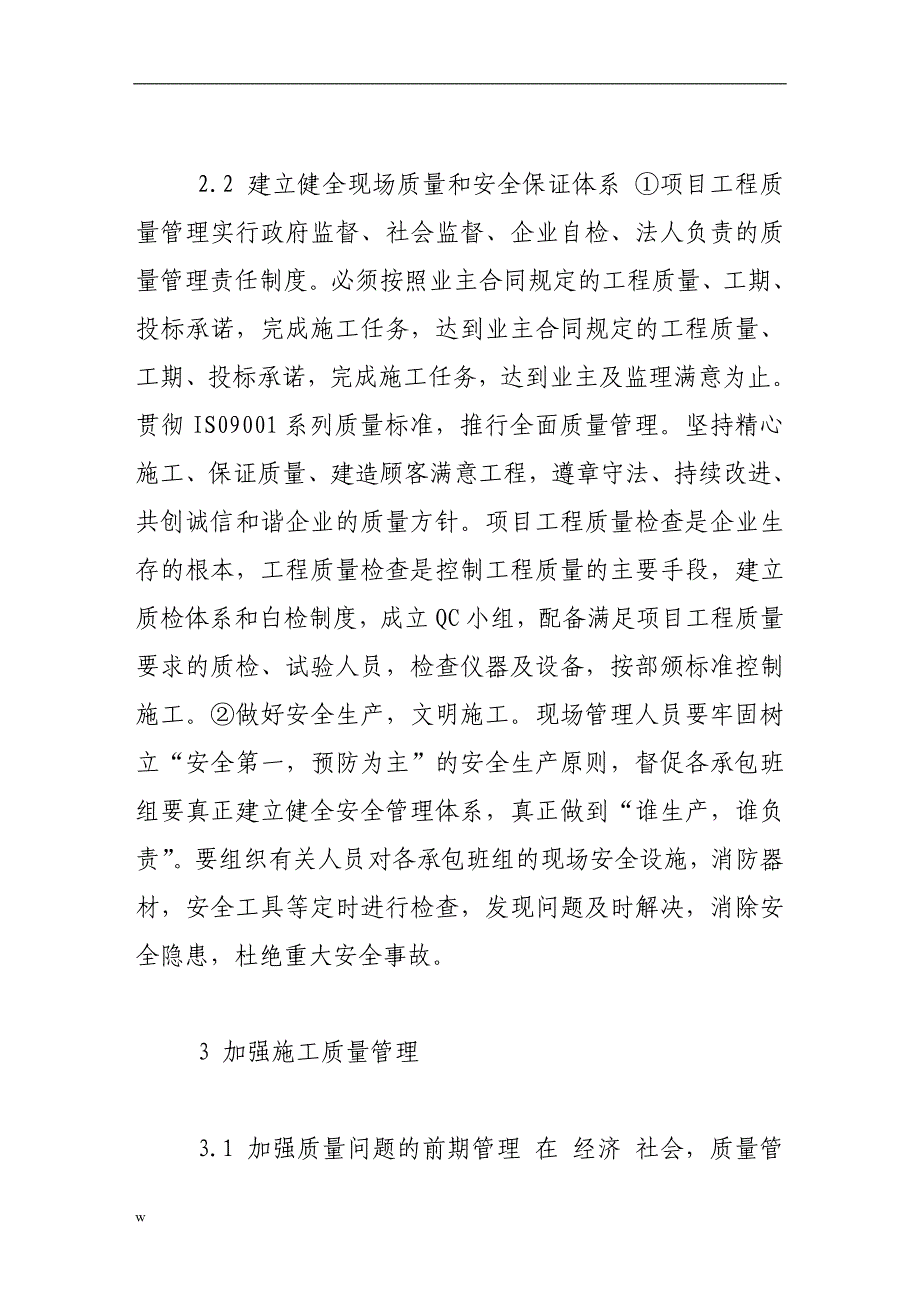 2.2 建立健全现场质量和安全保证体系 ①项目工程质
量管理实行政府监督、社会监督、企业自检、法人负责的质
量管理责任制度。必须按照业主合同规定的工程质量、工期、
投标承诺，完成施工任务，达到业主合同规定的工程质量、
工期、投标承诺，完成施工任务，达到业主及监理满意为止。
贯彻 IS09001 系列质量标准，推行全面质量管理。坚持精心
施工、保证质量、建造顾客满意工程，遵章守法、持续改进、
共创诚信和谐企业的质量方针。项目工程质量检查是企业生
存的根本，工程质量检查是控制工程质量的主要手段，建立
质检体系和白检制度，成立 QC 小组，配备满足项目工程质量
要求的质检、试验人员，检查仪器及设备，按部颁标准控制
施工。②做好安全生产，文明施工。现场管理人员要牢固树
立“安全第一，预防为主”的安全生产原则，督促各承包班
组要真正建立健全安全管理体系，真正做到“谁生产，谁负
责”。要组织有关人员对各承包班组的现场安全设施，消防器
材，安全工具等定时进行检查，发现问题及时解决，消除安
全隐患，杜绝重大安全事故。
3 加强施工质量管理
3.1 加强质量问题的前期管理 在 经济 社会，质量管
w